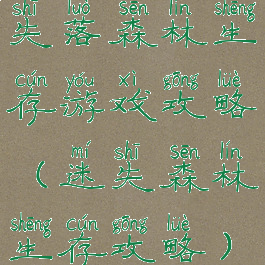 shī luò sēn lín shēng
失落森林生
cún yóu xì gōng lüè
存游戏攻略
mí shī sēn lín
（迷失森林
shēng cún gōng lüè
生存攻略）